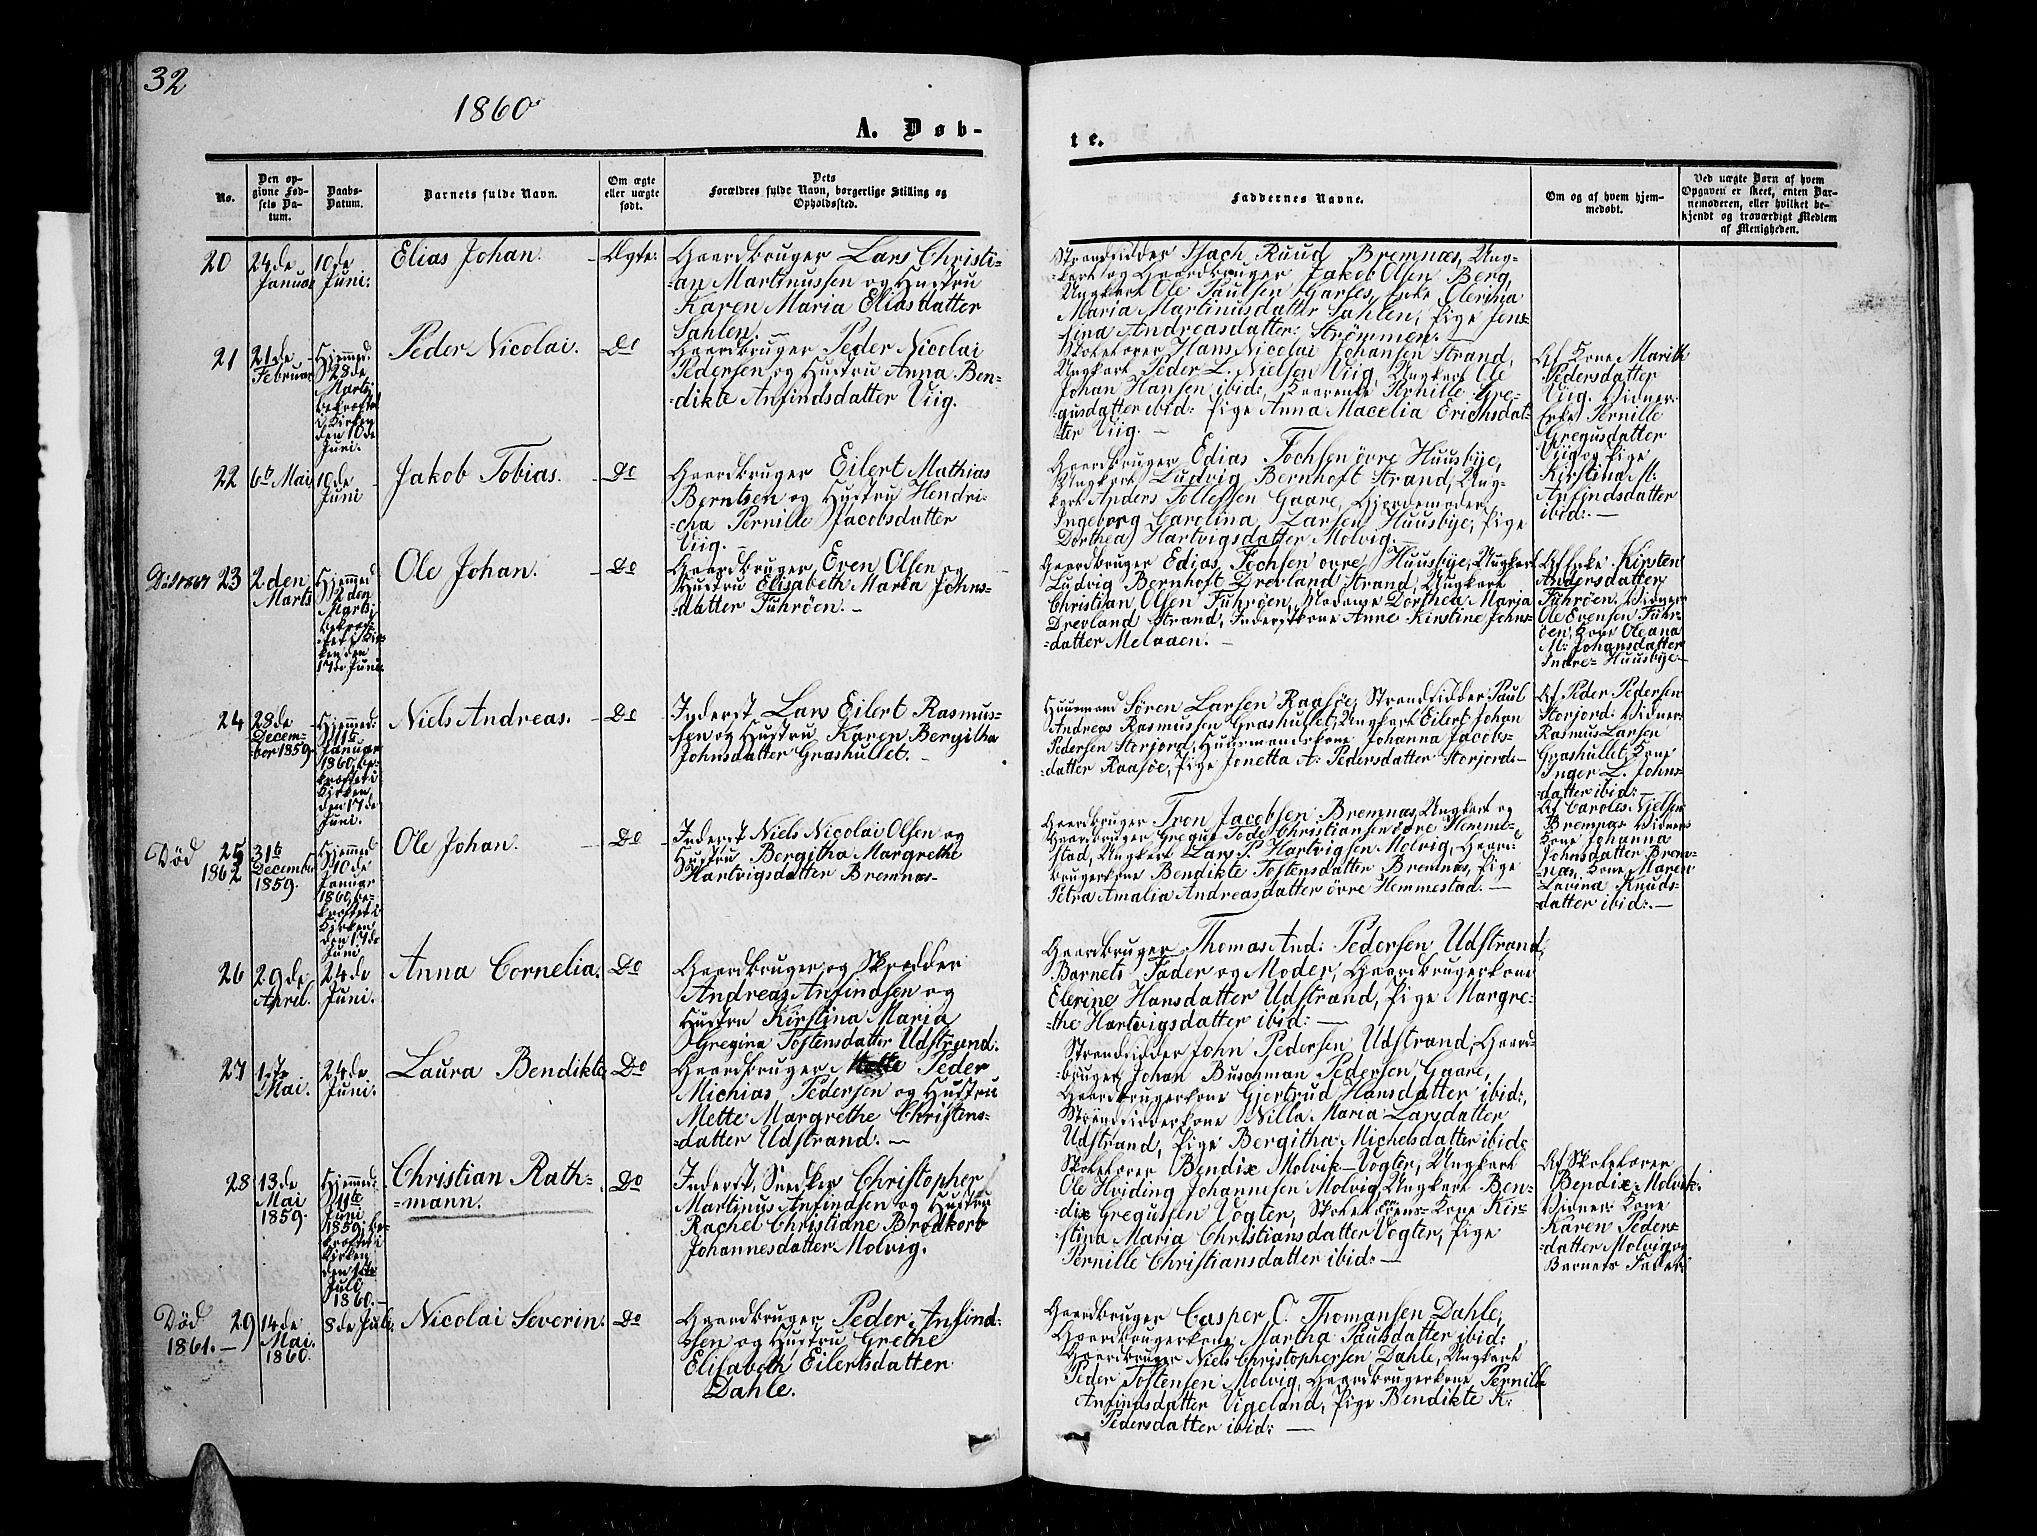 32
1860
A. Døb-
te.
No.
Den op-
givne Fød-
sels Da-
tum.
Daabs-
Datum.
Barnets fulde Navn.
Om ægte
eller uægte
født.
Dets
Forældres fulde Navn, borgerlige Stilling og
Opholdssted.
Faddernes Navne.
Om og af hvem hjem-
medøbt.
Ved uægte Børn af hvem
Opgaven er skeet, enten Bar-
nemoderen, eller hvilket be-
kjendt og troværdigt Medlem
af Menigheden.
20
24de
Januar
10de
Juni.
Elias Johan.
Ægte.
Gaardbruger Lars Christi-
=an Martinussen og Hustru
Karen Maria Eliasdatter
Sahlen.
Strandsidder Isach Ruud Bremnæs, Ung-
=karl og Gaardbruger Jakob Olsen Berg,
Ungkarl Ole Paulsen Enke Olerina
Maria Martinusdatter Sahlen, Pige Jen-
sina Andreasdatter Strømmen.
21
21de
Februar
Hjemmed.
28de
Marts,
bekræftet
i Kirken
den 10de
Juni.
Peder Nicolai.
Do
Gaardbruger Peder Nicolai
Pedersen og Hustru Anna Ben-
=dikte Anfindsdatter Viig.
Skolelærer Hans Nicolai Johansen Strand,
Ungkarl Peder L. Nielsen Viig, Ungkarl Ole
Johan Hansen ibid:, Pernille Gre-
gusdatter ibid: Pige Anna Macelia Erichsdat-
ter Viig. —
Af Kone Marith
Pedersdatter
Viig. Vidner:
Enke Pernille
Gregusdatter
Viig og Pige
Kirstina M.
Anfindsdatter
ibid: —
22
6te Mai
10de
Juni
Jakob Tobias.
Do
Gaardbruger Eilert Mathias
Berntsen og Hustru Hendri-
=cha Pernille Jacobsdatter
Viig. —
Gaardbruger Edias Tochsen øvre Huusbye,
Ungkarl Ludvig Bernhoft Strand, Ung-
karl Anders Tollefsen Gaare, Gjordemoder
Ingeborg Carolina Larsen Huusbye, Pige
Dorthea Hartvigsdatter Molvig. —
Død 1867
23
2den
Marts
Hjemmed
2den
Marts,
bekræf-
tet i Kir-
ken den
17de Juni.
Ole Johan.
Do
Gaardbruger Even Olsen og
Hustru Elisabeth Maria Johns-
=datter Fuhrøen. —
Gaardbruger Edias Tochsen øvre Huusbye, Ungkarl
Ludvig Bernhoft Drevland Strand, Ungkarl
Christian Olsen Fuhrøen, Madame Dorthea Maria
Drevland Strand, Inderstkone Anne Kirstine Johns-
=datter Melaaen. —
Af Enke Kirsten
Andersdatter
Fuhrøen. Vidner
Ole Evensen Fuhr-
øen, Kone Oleana
M. Johansdatter
Indre-Huusbye.
24
28de
Decem-
ber 1859.
Hjemmed:
11te
Januar
1860, be-
kræftet i
Kirken
den 17de
Juni.
Niels Andreas.
Do
Inderst Lars Eilert Rasmus-
sen og Hustru Karen Bergitha
Johnsdatter Grashullet. —
Huusmand Søren Larsen Raasøe, Strandsidder Paul
Andreas Rasmussen Grashullet, Ungkarl Eilert Johan
Pedersen Storjord, Huusmandskone Johanna Jacobs-
=datter Raasøe, Pige Jonetta A: Pedersdatter Storjord. —
Af Peder Pedersen
Storjord. Vidner:
Rasmus Larsen
Grashullet, Kone
Inger L. Johns-
=datter ibid: —
Død
1862
25
31te
December
1859.
Hjemmed
10de
Januar
1860, be-
kræftet i
Kirken
den 17de
Juni
Ole Johan.
Do
Inderst Niels Nicolai Olsen og
Hustru Bergitha Margrethe
Hartvigsdatter Bremnæs.
Gaardbruger Tron Jacobsen Bremnæs, Ungkarl og
Gaardbruger Gregus Tode Christiansen øvre Hemme-
stad, Ungkarl Lars P. Hartvigsen Molvig, Gaard-
brugerkone Bendikte Tostensdatter Bremnæs, Pige
Petra Amalia Andreasdatter øvre Hemmestad. —
Af Caroles Nielsen
Bremnæs Vidner
Kone Johanna
Johnsdatter Brem-
=næs, Kone Maren
Lovina Knuds-
datter ibid: —
26
29de
April.
24de
Juni.
Anna Cornelia.
Do
Gaardbruger og Skrædder
Andreas Anfindsen og
Hustru Kirstina Maria
Gregina Tostensdatter Udstrand.
Gaardbruger Thomas And: Pedersen Udstrand,
Barnets Fader og Moder, Gaardbrugerkone
Elerine Hansdatter Udstrand, Pige Margre-
=the Hartvigsdatter ibid: —
27
1ste
Mai.
24de
Juni.
Laura Bendikte
Do
Gaardbruger Peder
Michias Pedersen og Hustru
Mette Margrethe Christens-
=datter Udstrand. —
Strandsidder John Pedersen Udstrand, Gaard-
=bruger Johan Buschman Pedersen Gaare,
Gaardbrugerkone Gjertrud Hansdatter ibid:,
Strandsidderkone Nilla Maria Larsdatter
Udstrand, Pige Bergitha Michelsdatter ibid:
28
13de
Mai
1859.
Hjemmed:
11te
Juni
1859, be-
kræftet i
Kirken
den 1ste
Juli
1860. —
Christian Rath-
=mann.
Do
Inderst, Snedker Christopher
Martinus Anfindsen og Hustru
Rachel Christiane Brodkorb
Johannesdatter Molvig.
Skolelærer Bendix Molvik-Vogter, Ungkarl
Ole Hviding Johannesen Molvig, Ungkarl Ben-
dix Gregusen Vogter, Skolelærers-Kone Kir-
stina Maria Christiansdatter Vogter, Pige
Pernille Christiansdatter ibid: —
Af Skolelærer
Bendix Molvik.
Vidner: Kone
Karen Peders-
=datter Molvig og
Barnets Fader.
Død
1861. —
29
14de
Mai.
1860.
8de Juli.
Nicolai Severin.
Do
Gaardbruger Peder Anfind-
sen og Hustru Grethe
Elisabeth Eilertsdatter
Dahle.
Gaardbruger Casper C. Thomassen Dahle,
Gaardbrugerkone Martha Paulsdatter ibid:
Gaardbruger Niels Christophersen Dahle, Ungkarl
Peder Tostensen Molvig, Gaardbrugerkone Pernille
Anfindsdatter Vigeland, Pige Bendikte K.
Pedersdatter ibid: —